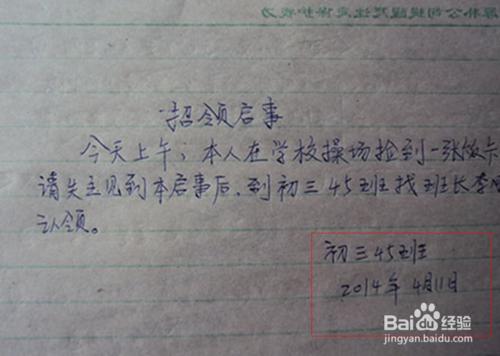 招领启事
今天上午，本人在学校操场捡到一张饭卡
请失主见到本启事后，到初三45班找班长李
认领。
初三45班
2014年4月11日
Baidu经验
jingyan.baidu.com